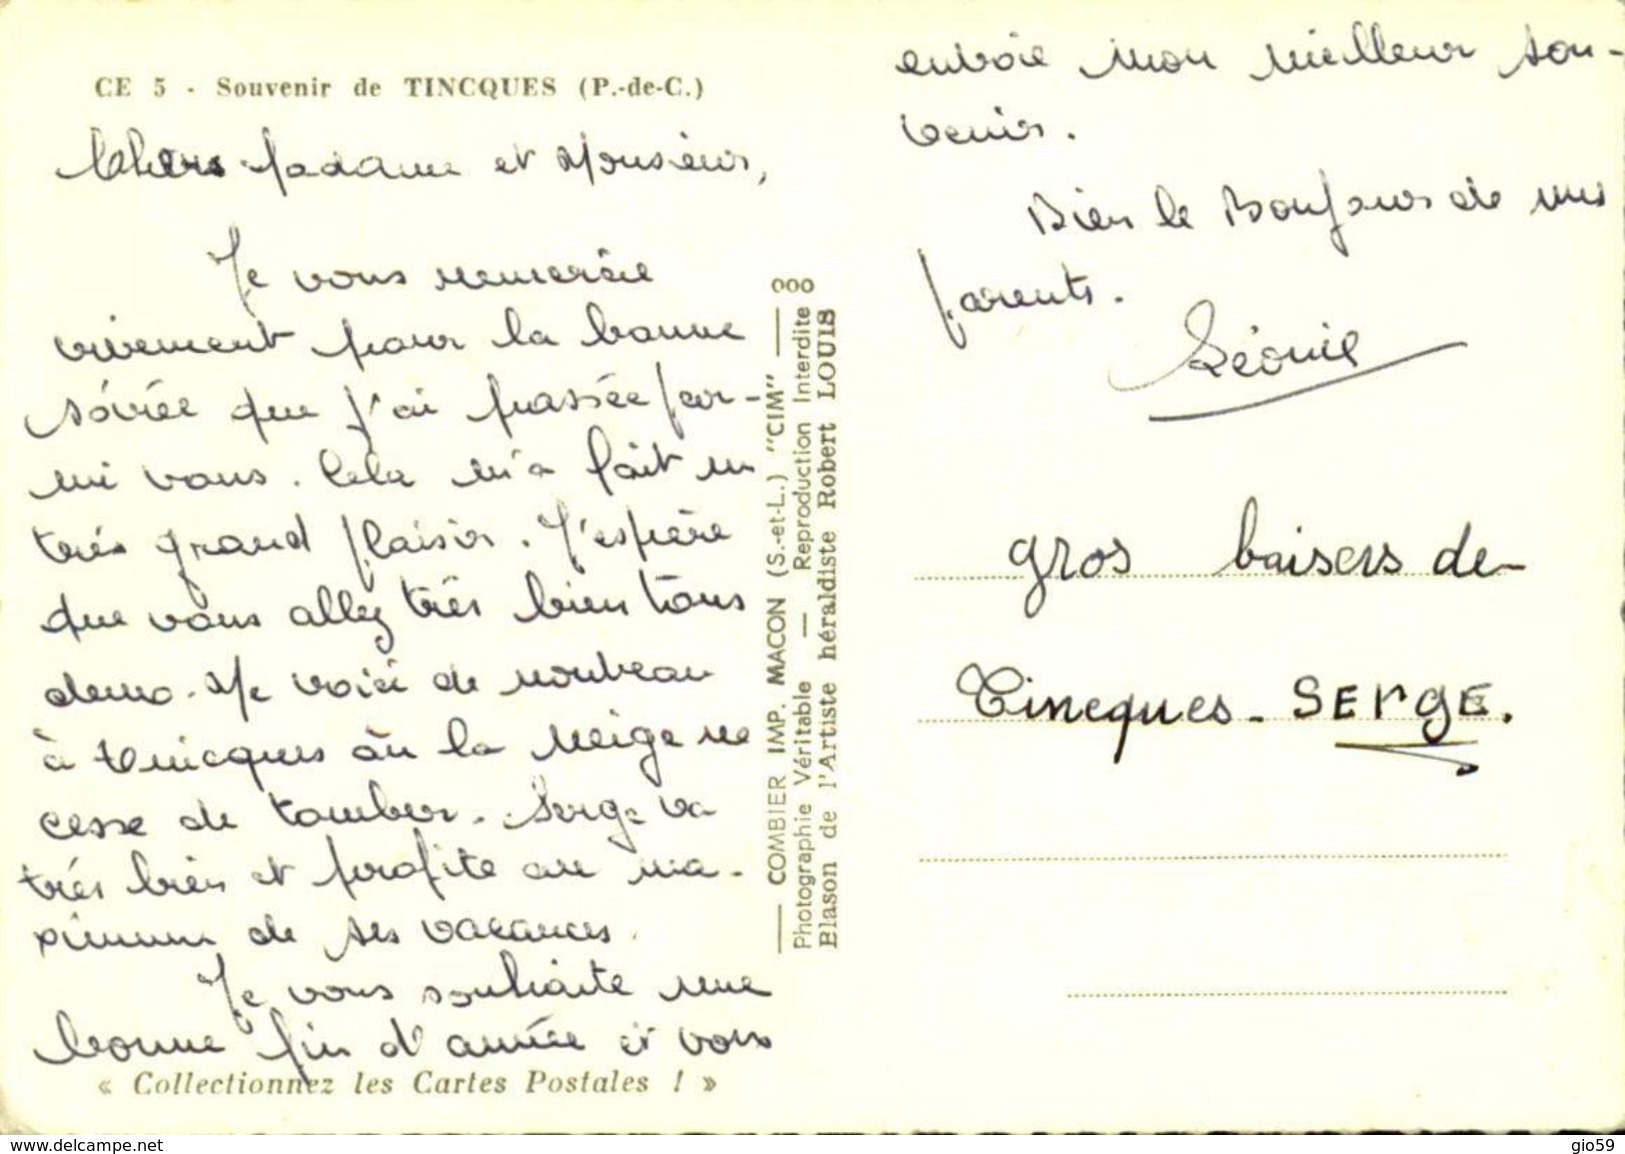 CE 5 - Souvenir de TINCQUES (P.-de-C.)
Chers Madame et Monsieur,
Je vous remercie
vivement pour la bonne
soirée que j'ai passée par-
mi vous. Cela m'a fait un
très grand plaisir. J'espère
que vous allez très bien tous
deux. Me voici de nouveau
à Tincques où la neige ne
cesse de tomber. Serge va
très bien et profite au ma-
ximum de ses vacances.
Je vous souhaite une
bonne fin d'année et vous
« Collectionnez les Cartes Postales ! »
COMBIER IMP. MACON (S.-et-L.) "CIM"
Photographie Véritable — Reproduction Interdite
Blason de l'Artiste héraldiste Robert LOUIS
envoie mon meilleur sou-
venir.
Bien le Bonjour de mes
parents.
Léonie
gros baisers de
Tincques - SErgE.
www.delcampe.net
gio59